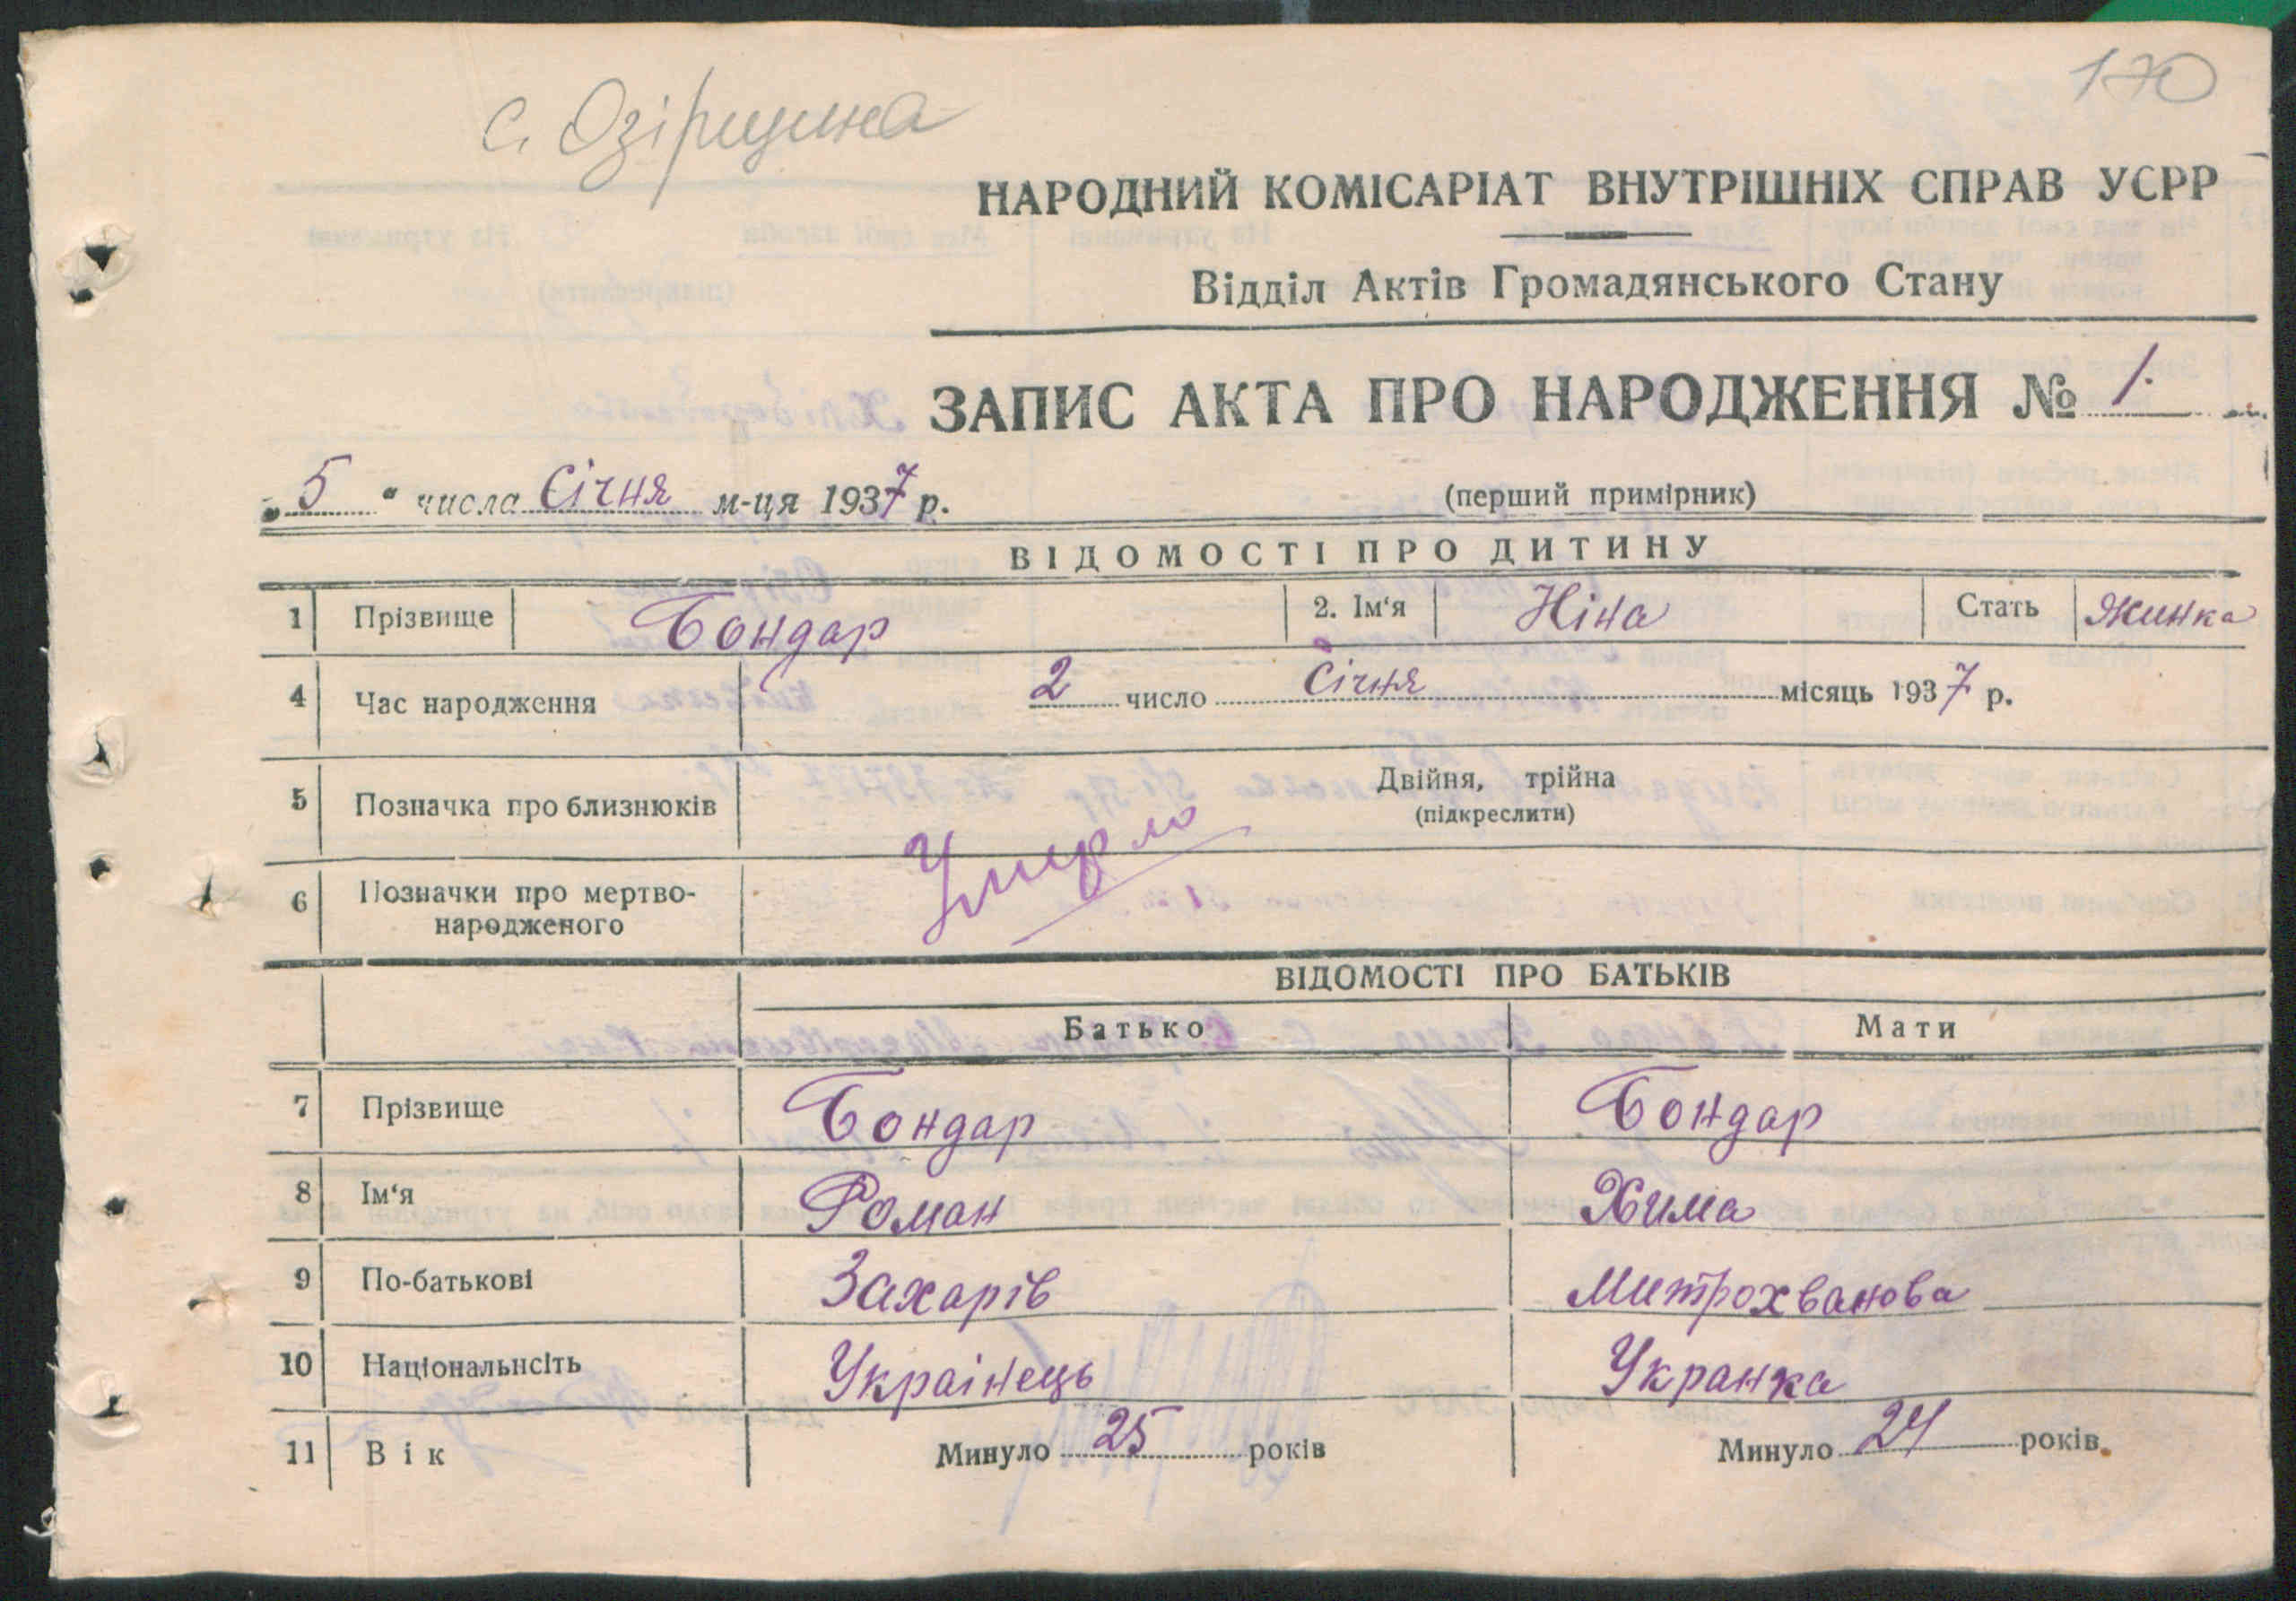 170
с. Озірщина
НАРОДНИЙ КОМІСАРІАТ ВНУТРІШНІХ СПРАВ УСРР
Відділ Актів Громадянського Стану
ЗАПИС АКТА ПРО НАРОДЖЕННЯ № 1.
„5“ числа Січня м-ця 1937 р. (перший примірник)
ВІДОМОСТІ ПРО ДИТИНУ
1 Прізвище Бондар 2. Ім‘я Ніна Стать Жинка
4 Час народження 2 число Січня місяць 1937 р.
5 Позначка про близнюків Двійня, трійна
(підкреслити)
Умерло
6 Позначки про мертво-
народженого
ВІДОМОСТІ ПРО БАТЬКІВ
Батько Мати
7 Прізвище Бондар Бондар
8 Ім‘я Роман Хима
9 По-батькові Захарів Митрохванова
10 Національнсіть Украінець Укранка
11 Вік Минуло 25 років Минуло 24 років.